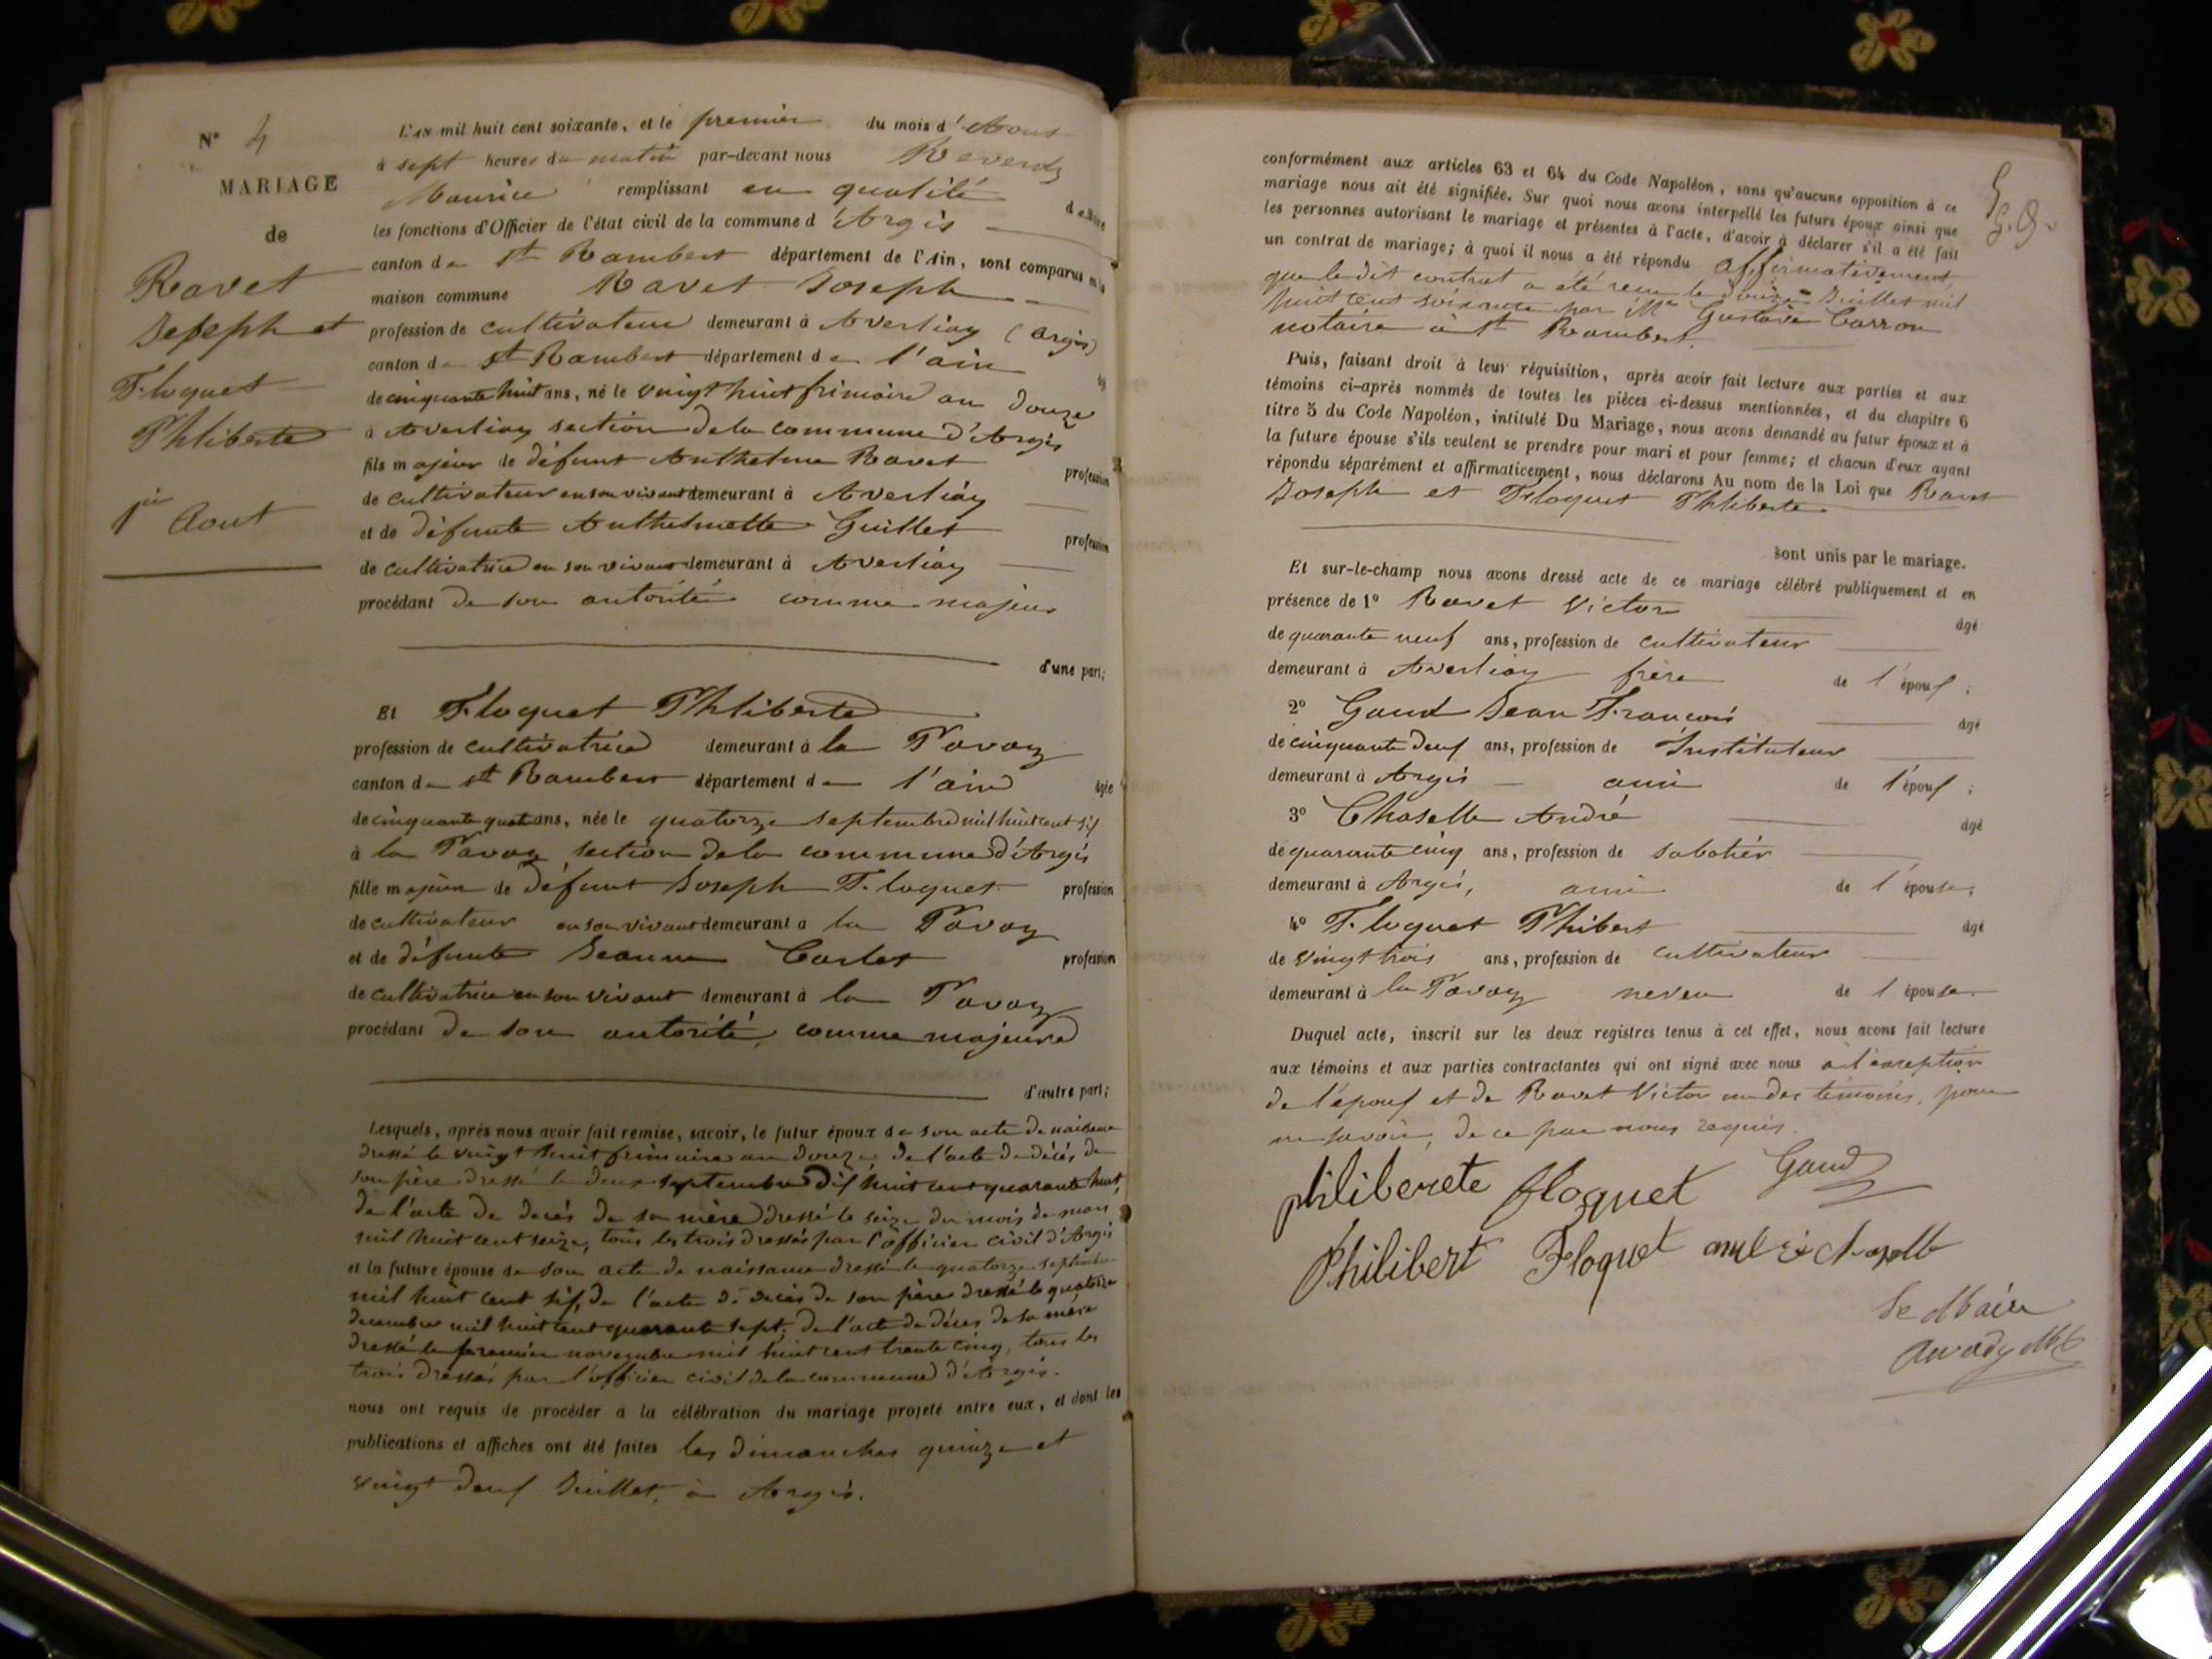 N° 4
MARIAGE
de
Ravet
Joseph et
Floquet
Phliberte
1er Aout
L'AN mil huit cent soixante, et le premier du mois d'Aout
à sept heures du matin par-devant nous
Maurice remplissant en qualité de Maire
les fonctions d'Officier de l'état civil de la commune d'Argis
canton de St Rambert département de l'Ain, sont comparus en la
maison commune Ravet Joseph
profession de cultivateur demeurant à Averliaz (Argis)
canton de St Rambert département de l'ain
de cinquante huit ans, né le vingt huit frimaire an douze
à Averliaz section de la commune d'Argis
fils majeur de défunt Anthelme Ravet profession
de cultivateur en son vivant demeurant à Averliaz
et de défunte Anthelmette Guillet profession
de cultivatrice en son vivant demeurant à Averliaz
procédant de son autorité comme majeur
d'une part;
Et Floquet Phliberte
profession de cultivatrice demeurant à la Pavaz
canton de St Rambert département de l'ain agée
de cinquante quatre ans, née le quatorze septembre mil huit cent six
à la Pavaz section de la commune d'Argis
fille majeure de défunt Joseph Floquet profession
de cultivateur en son vivant demeurant a la Pavaz
et de défunte Jeanne Carlet profession
de cultivatrice en son vivant demeurant à la Pavaz
procédant de son autorité, comme majeure
d'autre part;
Lesquels, après nous avoir fait remise, savoir, le futur époux de son acte de naissance
dressé le vingt huit frimaire an douze; de l'acte de décès de
son père dressé le deux septembre dix huit cent quarante huit,
de l'acte de decés de sa mère dressé le seize du mois de mars
mil huit cent seize, tous les trois dressés par l'officier civil d'Argis
et la future épouse de son acte de naissance dressé le quatorze septembre
mil huit cent six, de l'acte de décès de son père dressé le quatorze
decembre mil huit cent quarante sept; de l'acte de décès de sa mère
dressé le premier novembre mil huit cent trente cinq, tous les
trois dressés par l'officier civil de la commune d'Argis.
nous ont requis de procéder a la célébration du mariage projeté entre eux, et dont les
publications et affiches ont été faites les dimanches quinze et
vingt deux Juillet, à Argis.
conformément aux articles 63 et 64 du Code Napoléon, sans qu'aucune opposition à ce
mariage nous ait été signifiée. Sur quoi nous avons interpellé les futurs époux ainsi que
les personnes autorisant le mariage et présentes à l'acte, d'avoir à déclarer s'il a été fait
un contrat de mariage; à quoi il nous a été répondu affirmativement,
que le dit contrat a été reçu le douze Juillet mil
huit cent soixante par Me Gustave Carron
notaire à St Rambert.
Puis, faisant droit à leur réquisition, après avoir fait lecture aux parties et aux
témoins ci-après nommés de toutes les pièces ci-dessus mentionnées, et du chapitre 6
titre 5 du Code Napoléon, intitulé Du Mariage, nous avons demandé au futur époux et à
la future épouse s'ils veulent se prendre pour mari et pour femme; et chacun d'eux ayant
répondu séparément et affirmativement, nous déclarons Au nom de la Loi que Ravet
Joseph et Floquet Phliberte
sont unis par le mariage.
Et sur-le-champ nous avons dressé acte de ce mariage célébré publiquement et en
présence de 1° Ravet Victor âgé
de quarante neuf ans, profession de cultivateur
demeurant à Averliaz frère de l'époux;
2° Gaud Jean François âgé
de cinquante deux ans, profession de Instituteur
demeurant à Argis ami de l'époux;
3° Chaselle André âgé
de quarante cinq ans, profession de sabotier
demeurant à Argis, ami de l'épouse;
4° Floquet Phibert âgé
de vingt trois ans, profession de cultivateur
demeurant à la Pavaz neveu de l'épouse
Duquel acte, inscrit sur les deux registres tenus à cet effet, nous avons fait lecture
aux témoins et aux parties contractantes qui ont signé avec nous à l'exception
de l'époux et de Ravet Victor un des témoins, pour
ne savoir, de ce par nous requis.
philiberete floquet Gaud
Philibert Floquet
Le Maire